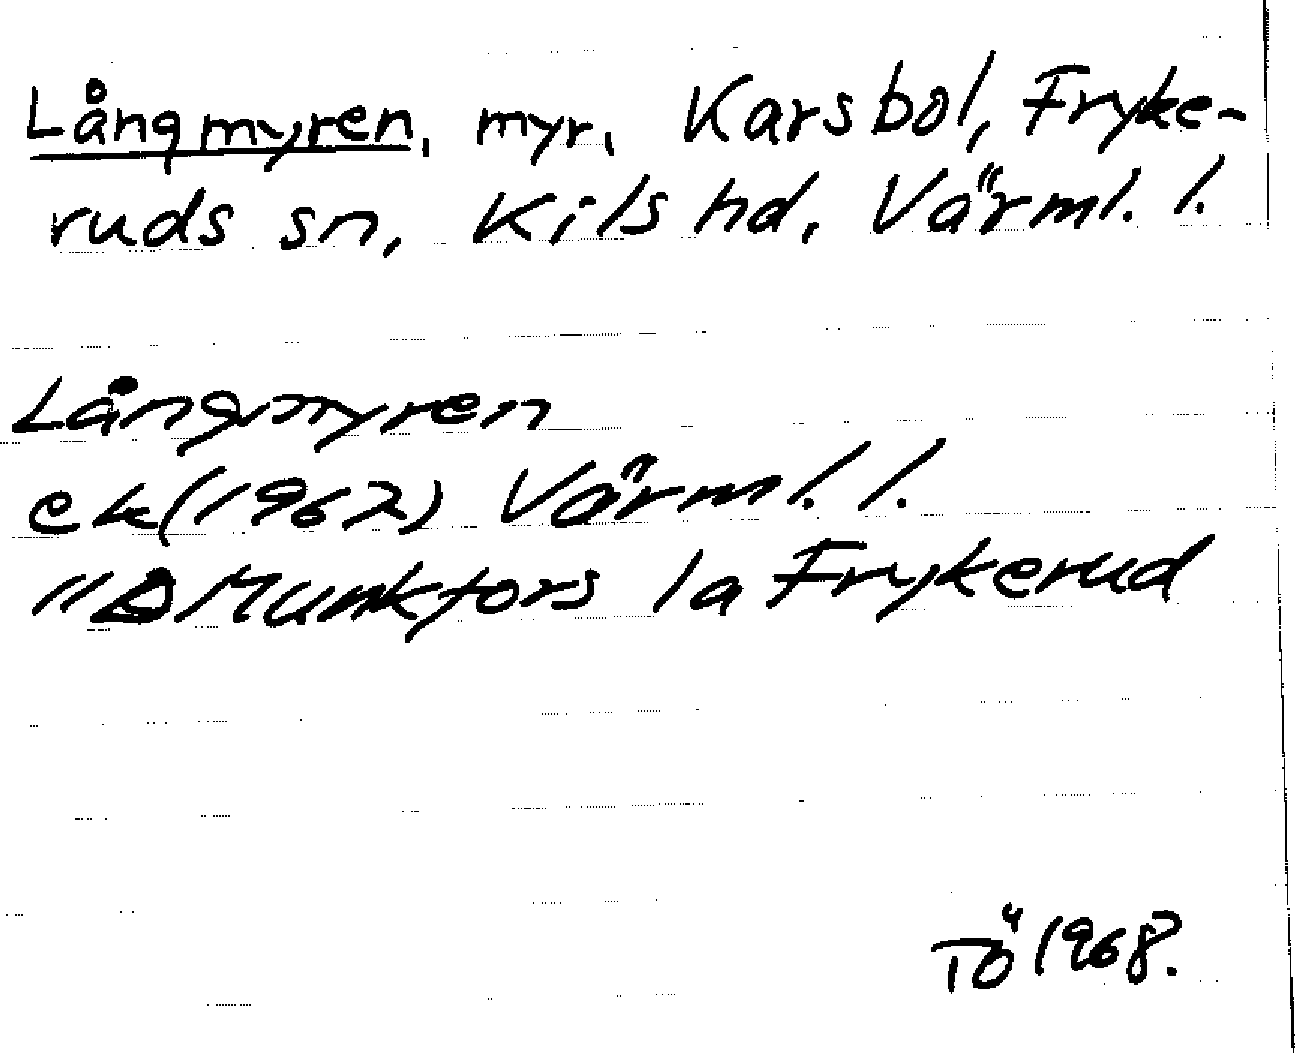 Långmyren, myr, Karsbol, Fryke-
ruds sn, Kils hd, Värml. l.
Långmyren
ek(1962) Värml. l.
" Munkfors la Frykerud
TÖ 1968.